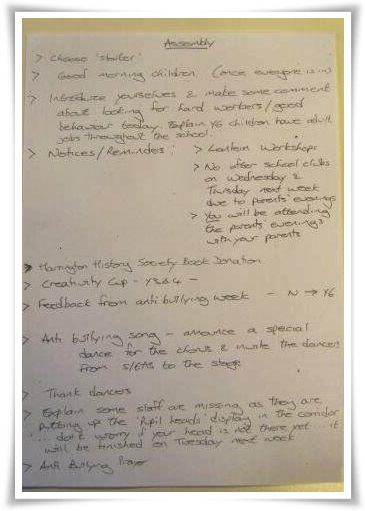 Assembly
> Choose 'starter'
> Good morning children (once everyone is in)
> Introduce yourselves & make some comment
about looking for hard workers/good
behaviour today. Explain Y6 children have adult
jobs throughout the school.
> Notices/Reminders:
> Lantern Workshops
> No after school clubs
on Wednesday &
Thursday next week
due to parents' evenings
> You will be attending
the parents' evenings
with your parents
> Harrington History Society Book Donation
> Creativity Cup - Y3&4 -
> Feedback from anti bullying week - N → Y6
> Anti bullying song - announce a special
dance for the chorus & invite the dancers
from to the stage
> Thank dancers
> Explain some staff are missing as they are
putting up the 'Pupil heads' display in the corridor
'... don't worry if your head is not there yet... it
will be finished on Tuesday next week
> Anti Bullying Prayer